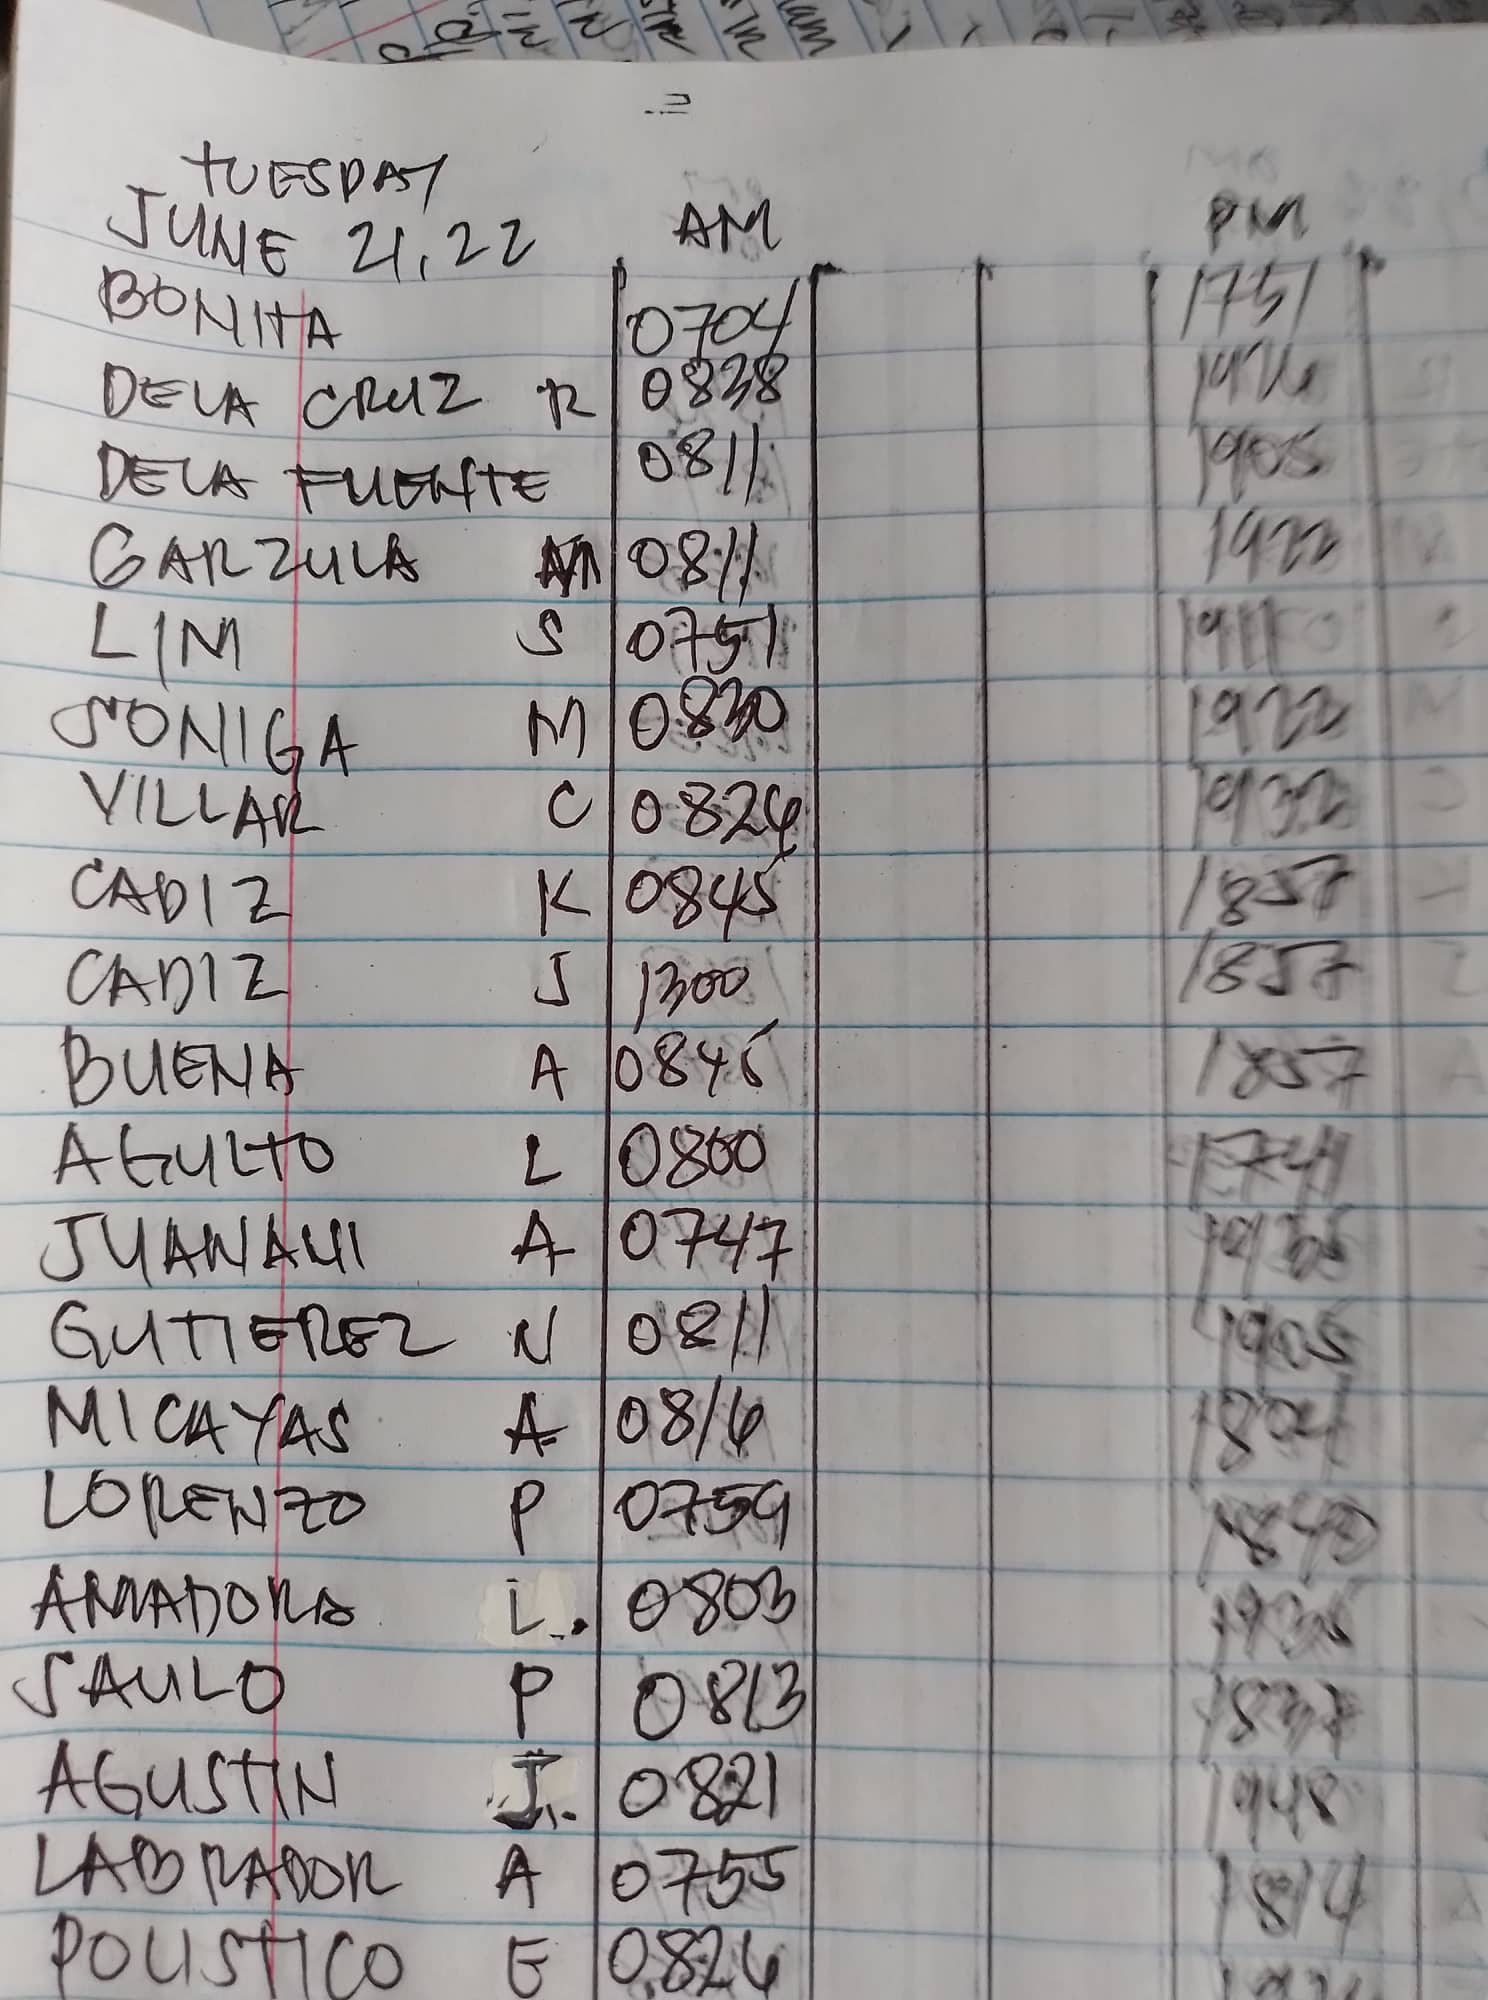 TUESDAY
JUNE 21, 22 AM PM
BONITA 0704 1751
DELA CRUZ R 0838
DELA FUENTE 0811 1905
GARZULA M 0811 1922
LIM S 0751
SONIGA M 0830 1922
VILLAR C 0826 1932
CADIZ K 0845 1857
CADIZ J 1300 1857
BUENA A 0845 1857
AGULTO L 0800 1741
JUANAHI A 0747
GUTIEREZ N 0811 1905
MICAYAS A 0816
LORENZO P 0759 1840
AMADORA L. 0803
SAULO P 0813
AGUSTIN J. 0821 1948
LABRADOR A 0755 1814
POLISTICO E 0826